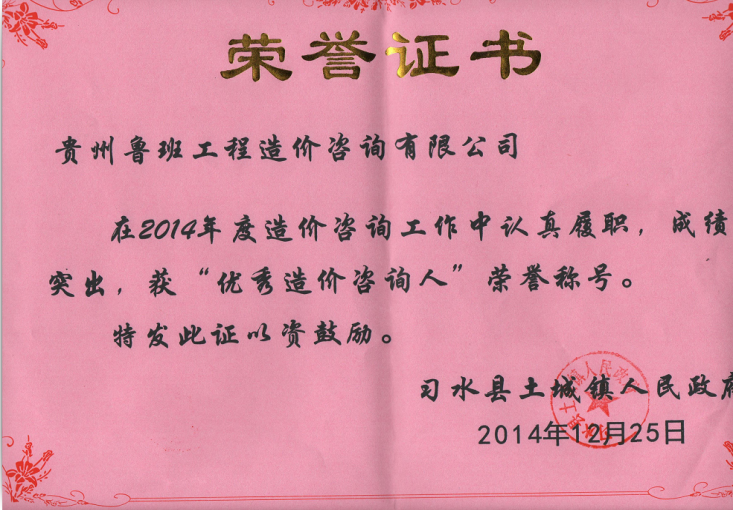 荣誉证书
贵州鲁班工程造价咨询有限公司
在2014年度造价咨询工作中认真履职，成绩
突出，获“优秀造价咨询人”荣誉称号。
特发此证以资鼓励。
习水县土城镇人民政府
2014年12月25日